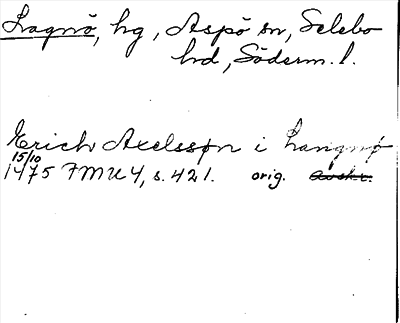 Lagnö, hg, Aspö sn, Selebo
hd, Söderm. l.
Erich Axelsson i Langnø
15/10
1475 FMU 4, s. 421. orig. Avskr.